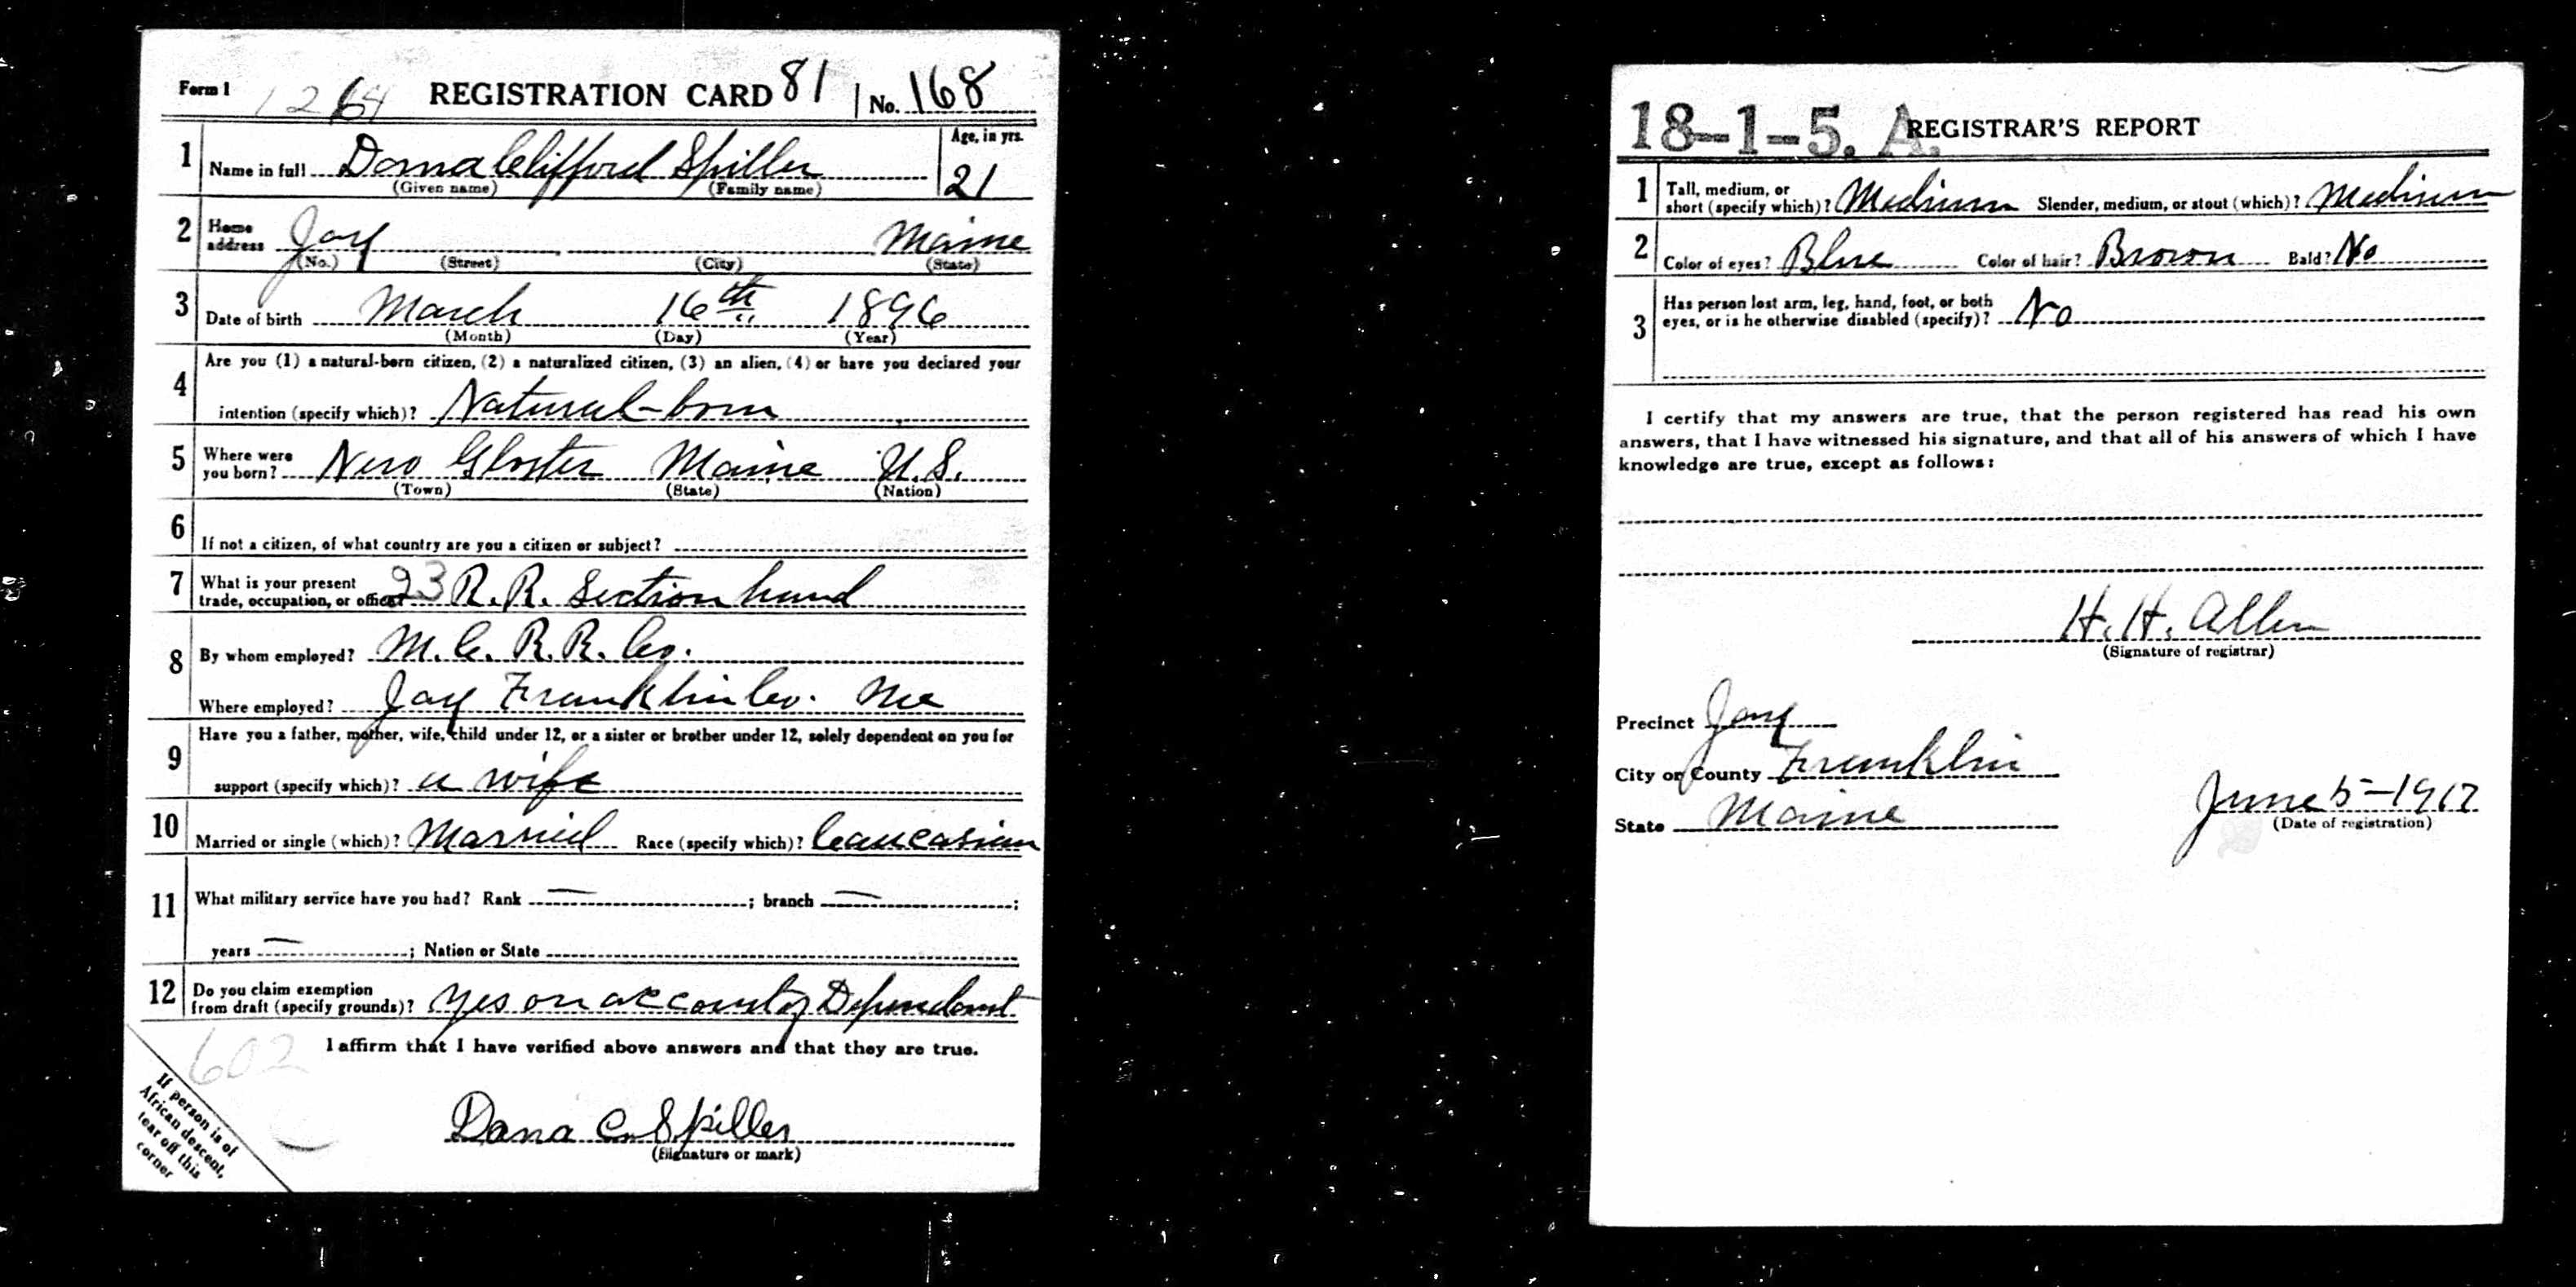 Form 1 1264 REGISTRATION CARD 81 No. 168
1 Name in full Dana Clifford Spiller Age, in yrs. 21
(Given name) (Family name)
2 Home address Jay Maine
(No.) (Street) (City) (State)
3 Date of birth March 16th 1896
(Month) (Day) (Year)
4 Are you (1) a natural-born citizen, (2) a naturalized citizen, (3) an alien, (4) or have you declared your
intention (specify which)? Natural-born
5 Where were you born? New Gloster Maine U.S.
(Town) (State) (Nation)
6 If not a citizen, of what country are you a citizen or subject?
7 What is your present
trade, occupation, or office? 23 R. R. Section hand
8 By whom employed? M. C. R. R. Co.
Where employed? Jay Franklin Co. Me
9 Have you a father, mother, wife, child under 12, or a sister or brother under 12, solely dependent on you for
support (specify which)? a wife
10 Married or single (which)? Married Race (specify which)? Caucasian
11 What military service have you had? Rank — ; branch — ;
years — ; Nation or State
12 Do you claim exemption
from draft (specify grounds)? Yes on account of Dependant
602 I affirm that I have verified above answers and that they are true.
Dana C. Spiller
(Signature or mark)
If person is of
African descent,
tear off this
corner
18-1-5. A. REGISTRAR'S REPORT
1 Tall, medium, or
short (specify which)? Medium Slender, medium, or stout (which)? Medium
2 Color of eyes? Blue Color of hair? Brown Bald? No
3 Has person lost arm, leg, hand, foot, or both
eyes, or is he otherwise disabled (specify)? No
I certify that my answers are true, that the person registered has read his own
answers, that I have witnessed his signature, and that all of his answers of which I have
knowledge are true, except as follows:
H. H. Allen
(Signature of registrar)
Precinct Jay
City or County Franklin
State Maine
June 5-1917
(Date of registration)